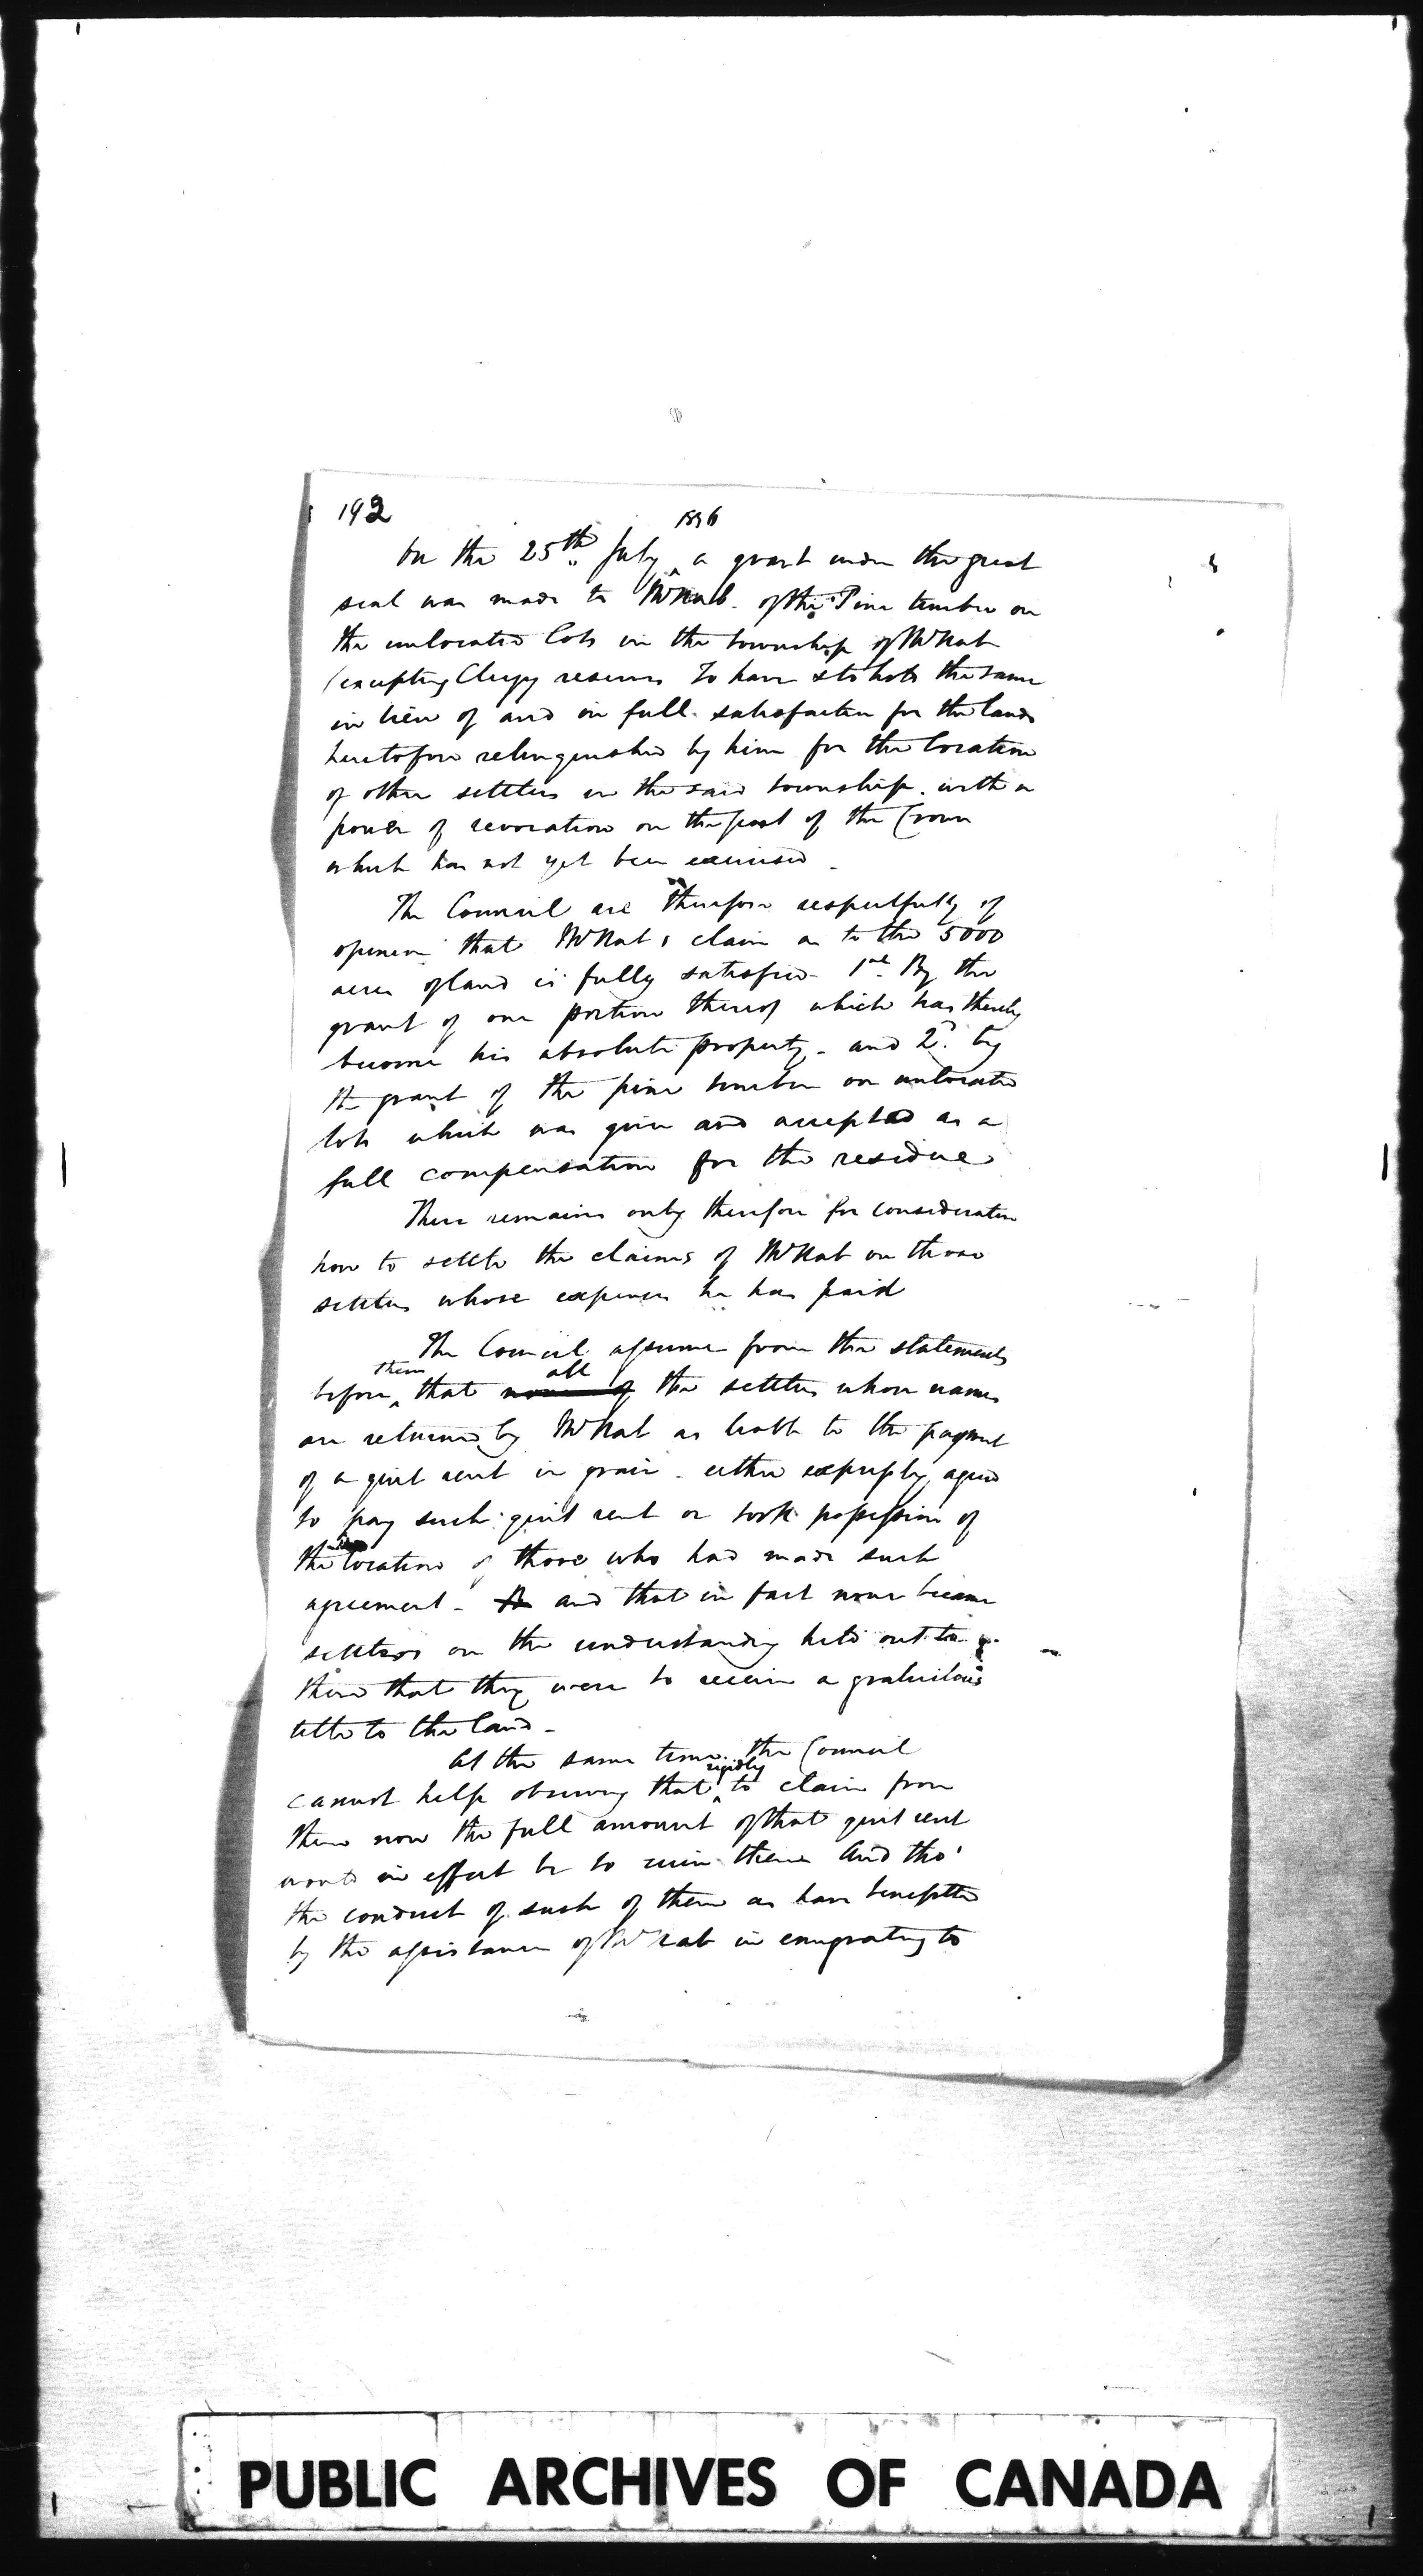 192
1836
On the 25th July a grant under the great
seal was made to McNab of the Pine timber on
the unlocated lots in the township of McNab
(excepting Clergy reserves To have & to hold the same
in lieu of and in full satisfaction for the lands
heretofore relinquished by him for the location
of other settlers in the said township. with a
power of revocation on the part of the Crown
which has not yet been exercised
The Council are therefore respectfully of
opinion that McNab's claim as to the 5000
acres of land is fully satisfied - 1st By the
grant of one portion thereof which has thereby
become his absolute property - and 2d. by
the grant of the pine timber on unlocated
lots which was given and accepted as a
full compensation for the residue
There remains only therefore for consideration
how to settle the claims of McNab on those
settlers whose expenses he has paid
The Council assume from the statements
them all
before that none of the settlers whose names
are returned by McNab as liable to the payment
of a quit rent in grain - either expressly agreed
to pay such quit rent or took possession of
the location of those who had made such
agreement - and that in fact none became
settlers on the understanding held out to
them that they were to receive a gratuitous
title to the land -
At the same time the Council
rigidly
cannot help observing that to claim from
them now the full amount of that quit rent
would in effect be to ruin them And tho'
the conduct of such of them as have benefitted
by the assistance of McNab in emigrating to
PUBLIC ARCHIVES OF CANADA